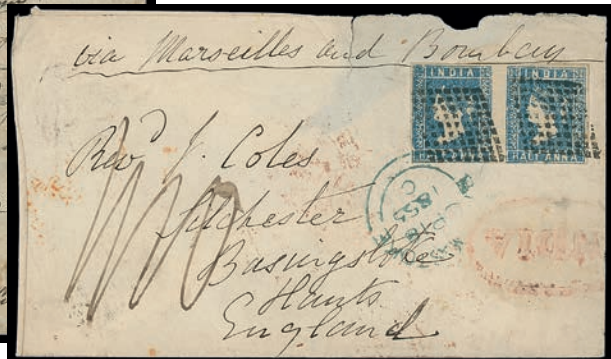 via Marseilles and Bombay
INDIA INDIA
HALF ANNA
Revd J. Coles
Silchester
Basingstoke
Hants
England
1855
INDIA